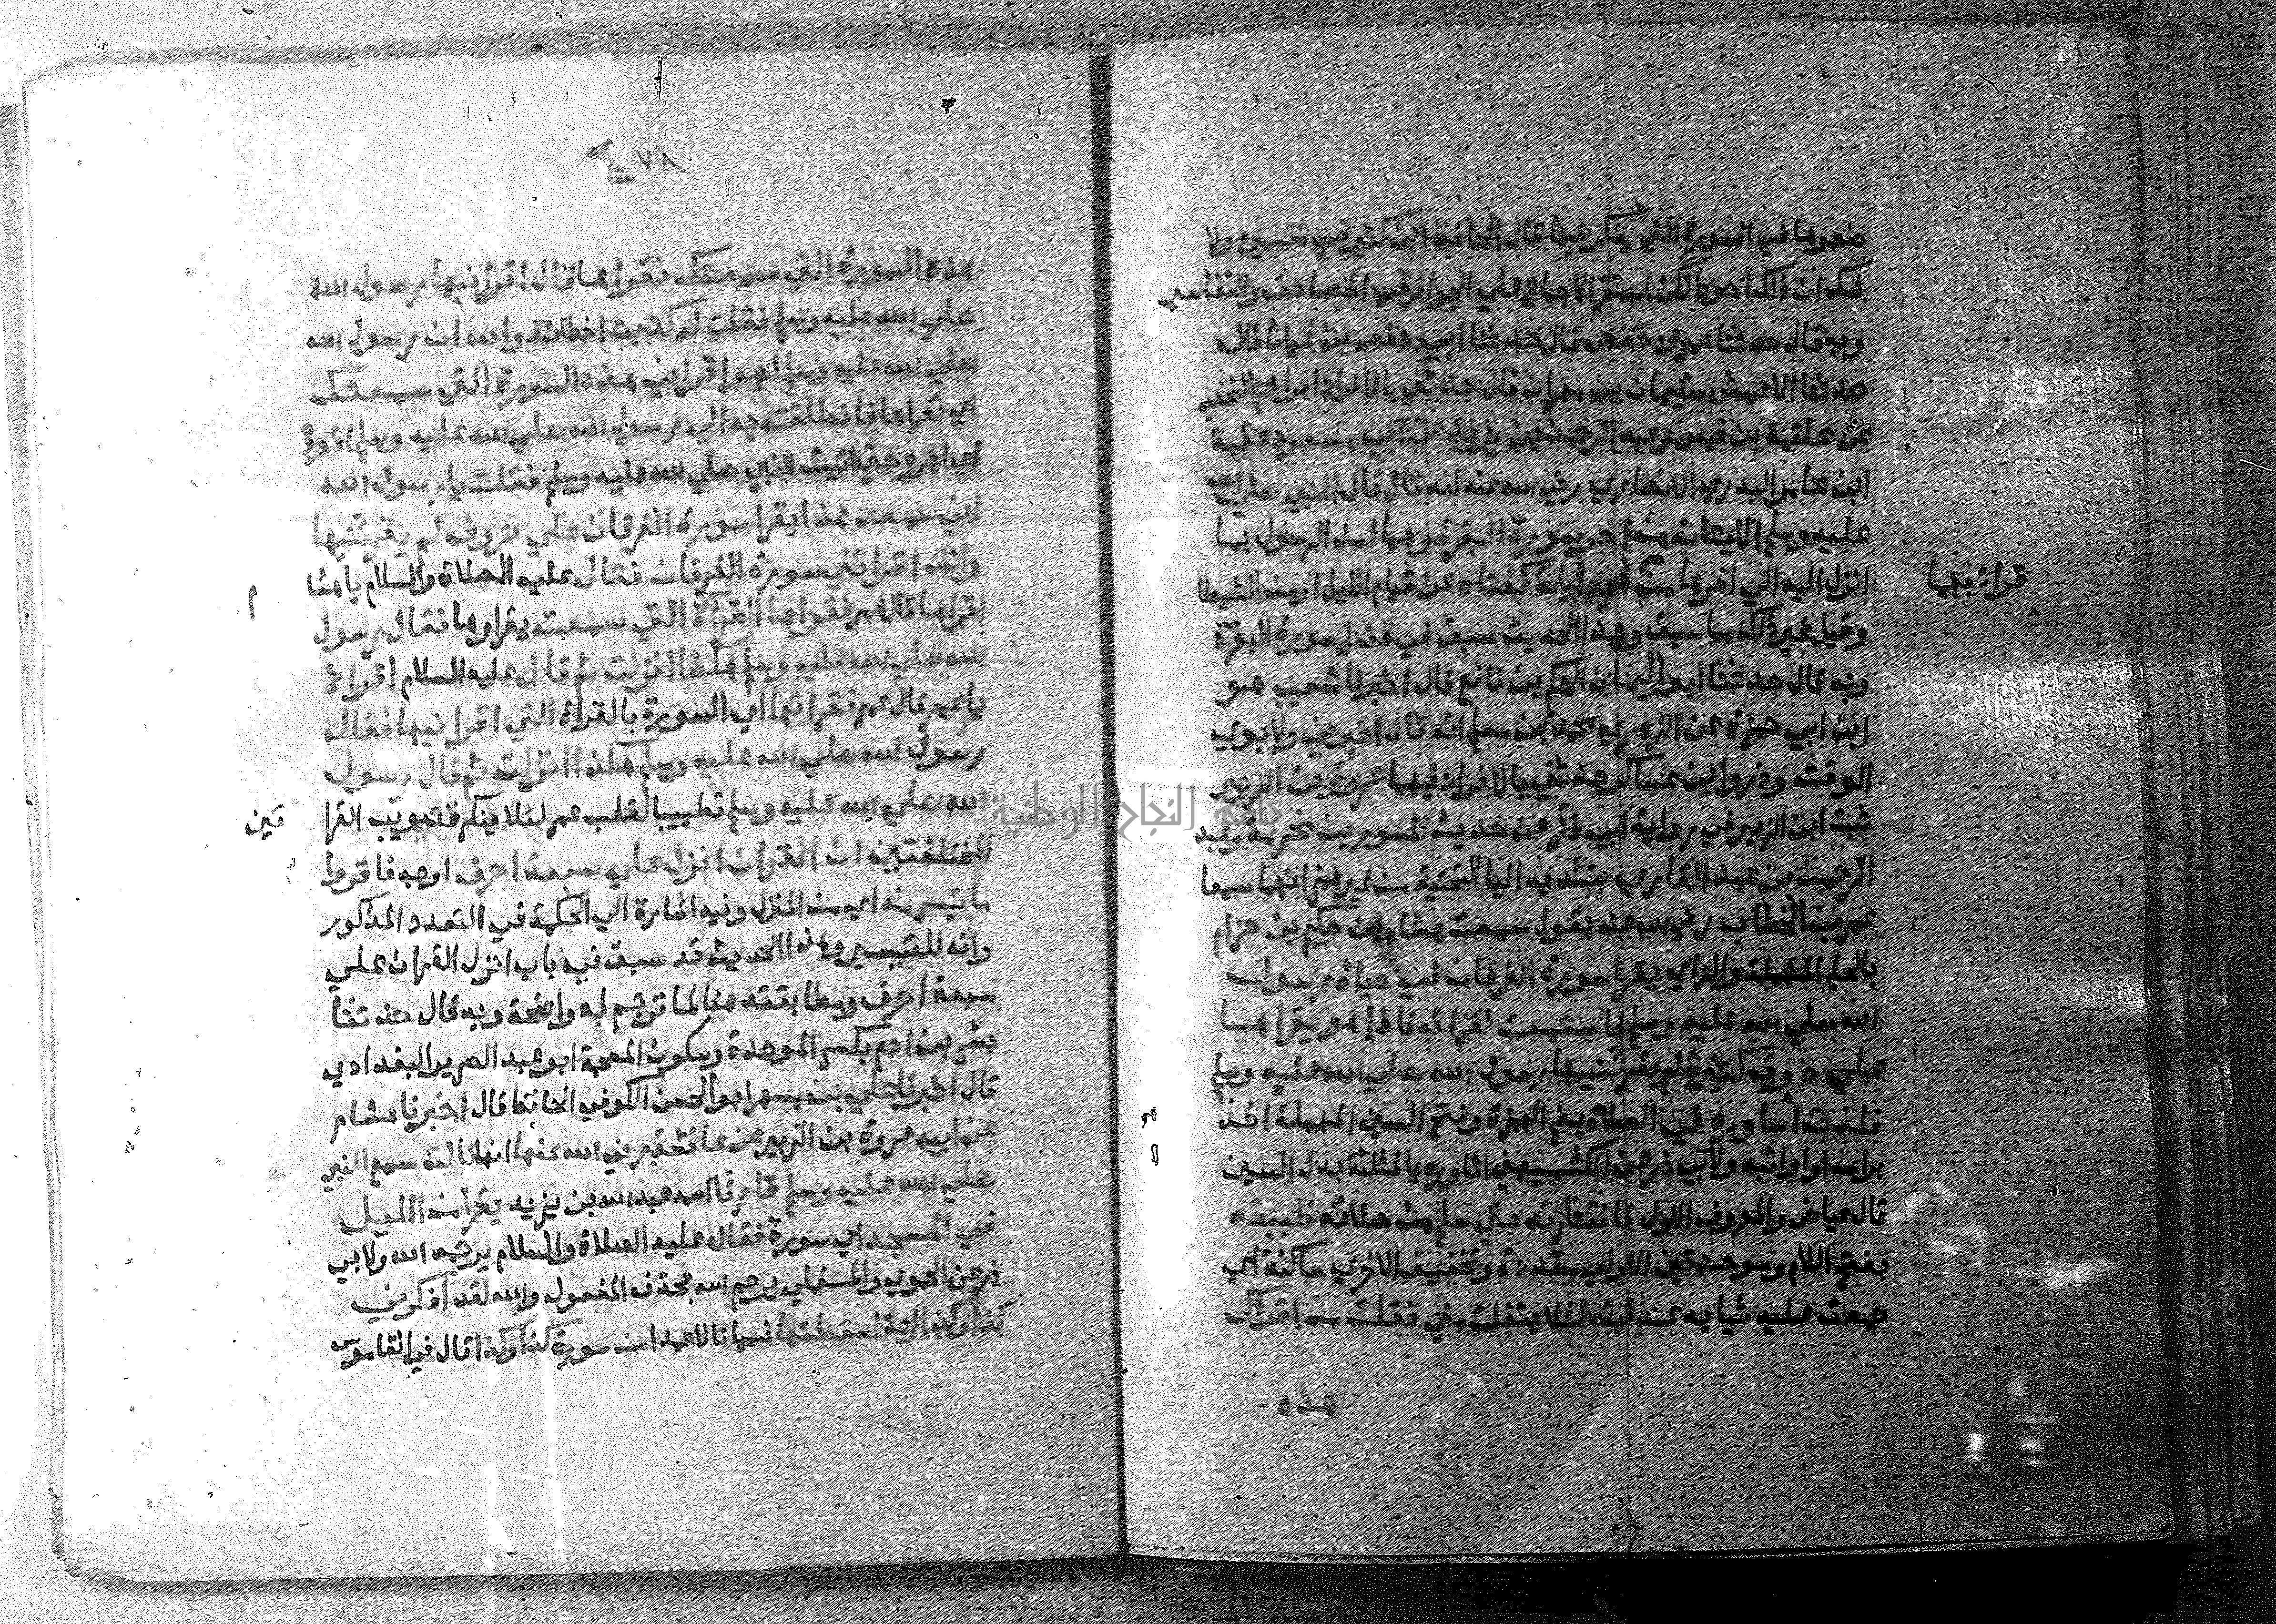 ضعوها في السورة التي يذكر فيها قال الحافظ ابن كثير في تفسيره ولا
شك ان ذلك احوط لكن استقر الاجماع علي الجواز في المصاحف والتفاسير
وبه قال حدثنا عمر بن حفص قال حدثنا ابي حفص بن غياث قال
حدثنا الاعمش سليمان بن مهران قال حدثني بالافراد ابراهيم النخعي
عن علقمة بن قيس وعبد الرحمن بن يزيد عن ابي مسعود عقبة
ابن عامر البدري الانصاري رضي الله عنه انه قال قال النبي صلي الله
عليه وسلم الايتان من اخر سورة البقرة وهما امن الرسول بما
انزل اليه الي اخرها من في ليلة كفتاه عن قيام الليل او من الشيطان
قراء بهما
وقيل غير ذلك مما سبق وهذا الحديث سبق في فضل سورة البقرة
وبه قال حدثنا ابو اليمان الحكم بن نافع قال اخبرنا شعيب هو
ابن ابي حمزة عن الزهري محمد بن مسلم انه قال اخبرني ولابوي
الوقت وذر وابن عساكر حدثني بالافراد فيهما عروة بن الزبير
ثبت ابن الزبير في رواية ابي ذر عن حديث المسور بن مخرمة وعبد
الرحمن بن عبد القاري بتشديد اليا التحتية من غير همز انهما سمعا
عمر بن الخطاب رضي الله عنه يقول سمعت هشام بن حكيم بن حزام
بالحاء المهملة والزاي يقرا سورة الفرقان في حياة رسول
الله صلي الله عليه وسلم فاستمعت لقراته فاذا هو يقراها
علي حروف كثيرة لم يقرئنيها رسول الله صلي الله عليه وسلم
فكدت اساوره في الصلاة بضم الهمزة وفتح السين المهملة اخذ
براسه او اواثبه ولابي ذر عن الكشميهني اثاوره بالمثلثة بدل السين
قال عياض والمعروف الاول فانتظرته حتي سلم من صلاته فلببته
بفتح اللام وموحدتين الاولي مشددة وتخفيف الاخري ساكنة اي
جمعت عليه ثيابه عند لبته لئلا ينفلت مني فقلت من اقراك
هذه
٧٨
هذه السورة التي سمعتك تقراها قال اقرانيها رسول الله
صلي الله عليه وسلم فقلت له كذبت اخطات فوالله ان رسول الله
صلي الله عليه وسلم لهو اقراني هذه السورة التي سمعتك
اي تقراها فانطلقت به الي رسول الله صلي الله عليه وسلم اقوده
اي اجره حتي اتيت النبي صلي الله عليه وسلم فقلت يا رسول الله
اني سمعت هذا يقرا سورة الفرقان علي حروف لم يقرئنيها
وانت اقراتني سورة الفرقان فقال عليه الصلاة والسلام يا هشا
م
اقراها قال عمر فقراها القراءة التي سمعته يقراوها فقال رسول
الله صلي الله عليه وسلم هكذا انزلت ثم قال عليه السلام اقراء
يا عمر قال عمر فقراتها اي السورة بالقراة التي اقرانيها فقال
رسول الله صلي الله عليه وسلم هكذا انزلت ثم قال رسول
الله صلي الله عليه وسلم تطييبا لقلب عمر لئلا ينكر تصويب القرا
تين
المختلفتين ان القران انزل علي سبعة احرف اوجه فاقروا
ما تيسر منه اي من المنزل وفيه اشارة الي الحكمة في التعدد المذكور
وانه للتيسير وهذا الحديث قد سبق في باب انزل القران علي
سبعة احرف ومطابقته هنا لما ترجم له واضحة وبه قال حدثنا
بشر بن ادم بكسر الموحدة وسكون المعجمة ابو عبد الله الضرير البغدادي
قال اخبرنا علي بن مسهر ابو الحسن الكوفي الحافظ قال اخبرنا هشام
عن ابيه عروة بن الزبير عن عائشة رضي الله عنها انها قالت سمع النبي
صلي الله عليه وسلم قارئا اسمه عبد الله بن يزيد يقرا من الليل
في المسجد اي سورة فقال عليه الصلاة والسلام يرحمه الله ولابي
ذر عن الحموي والمستملي يرحم الله بحذف المفعول والله لقد اذكرني
كذا وكذا اية اسقطتها نسيانا لا عمدا من سورة كذا وكذا قال في القاموس
جامعة النجاح الوطنية